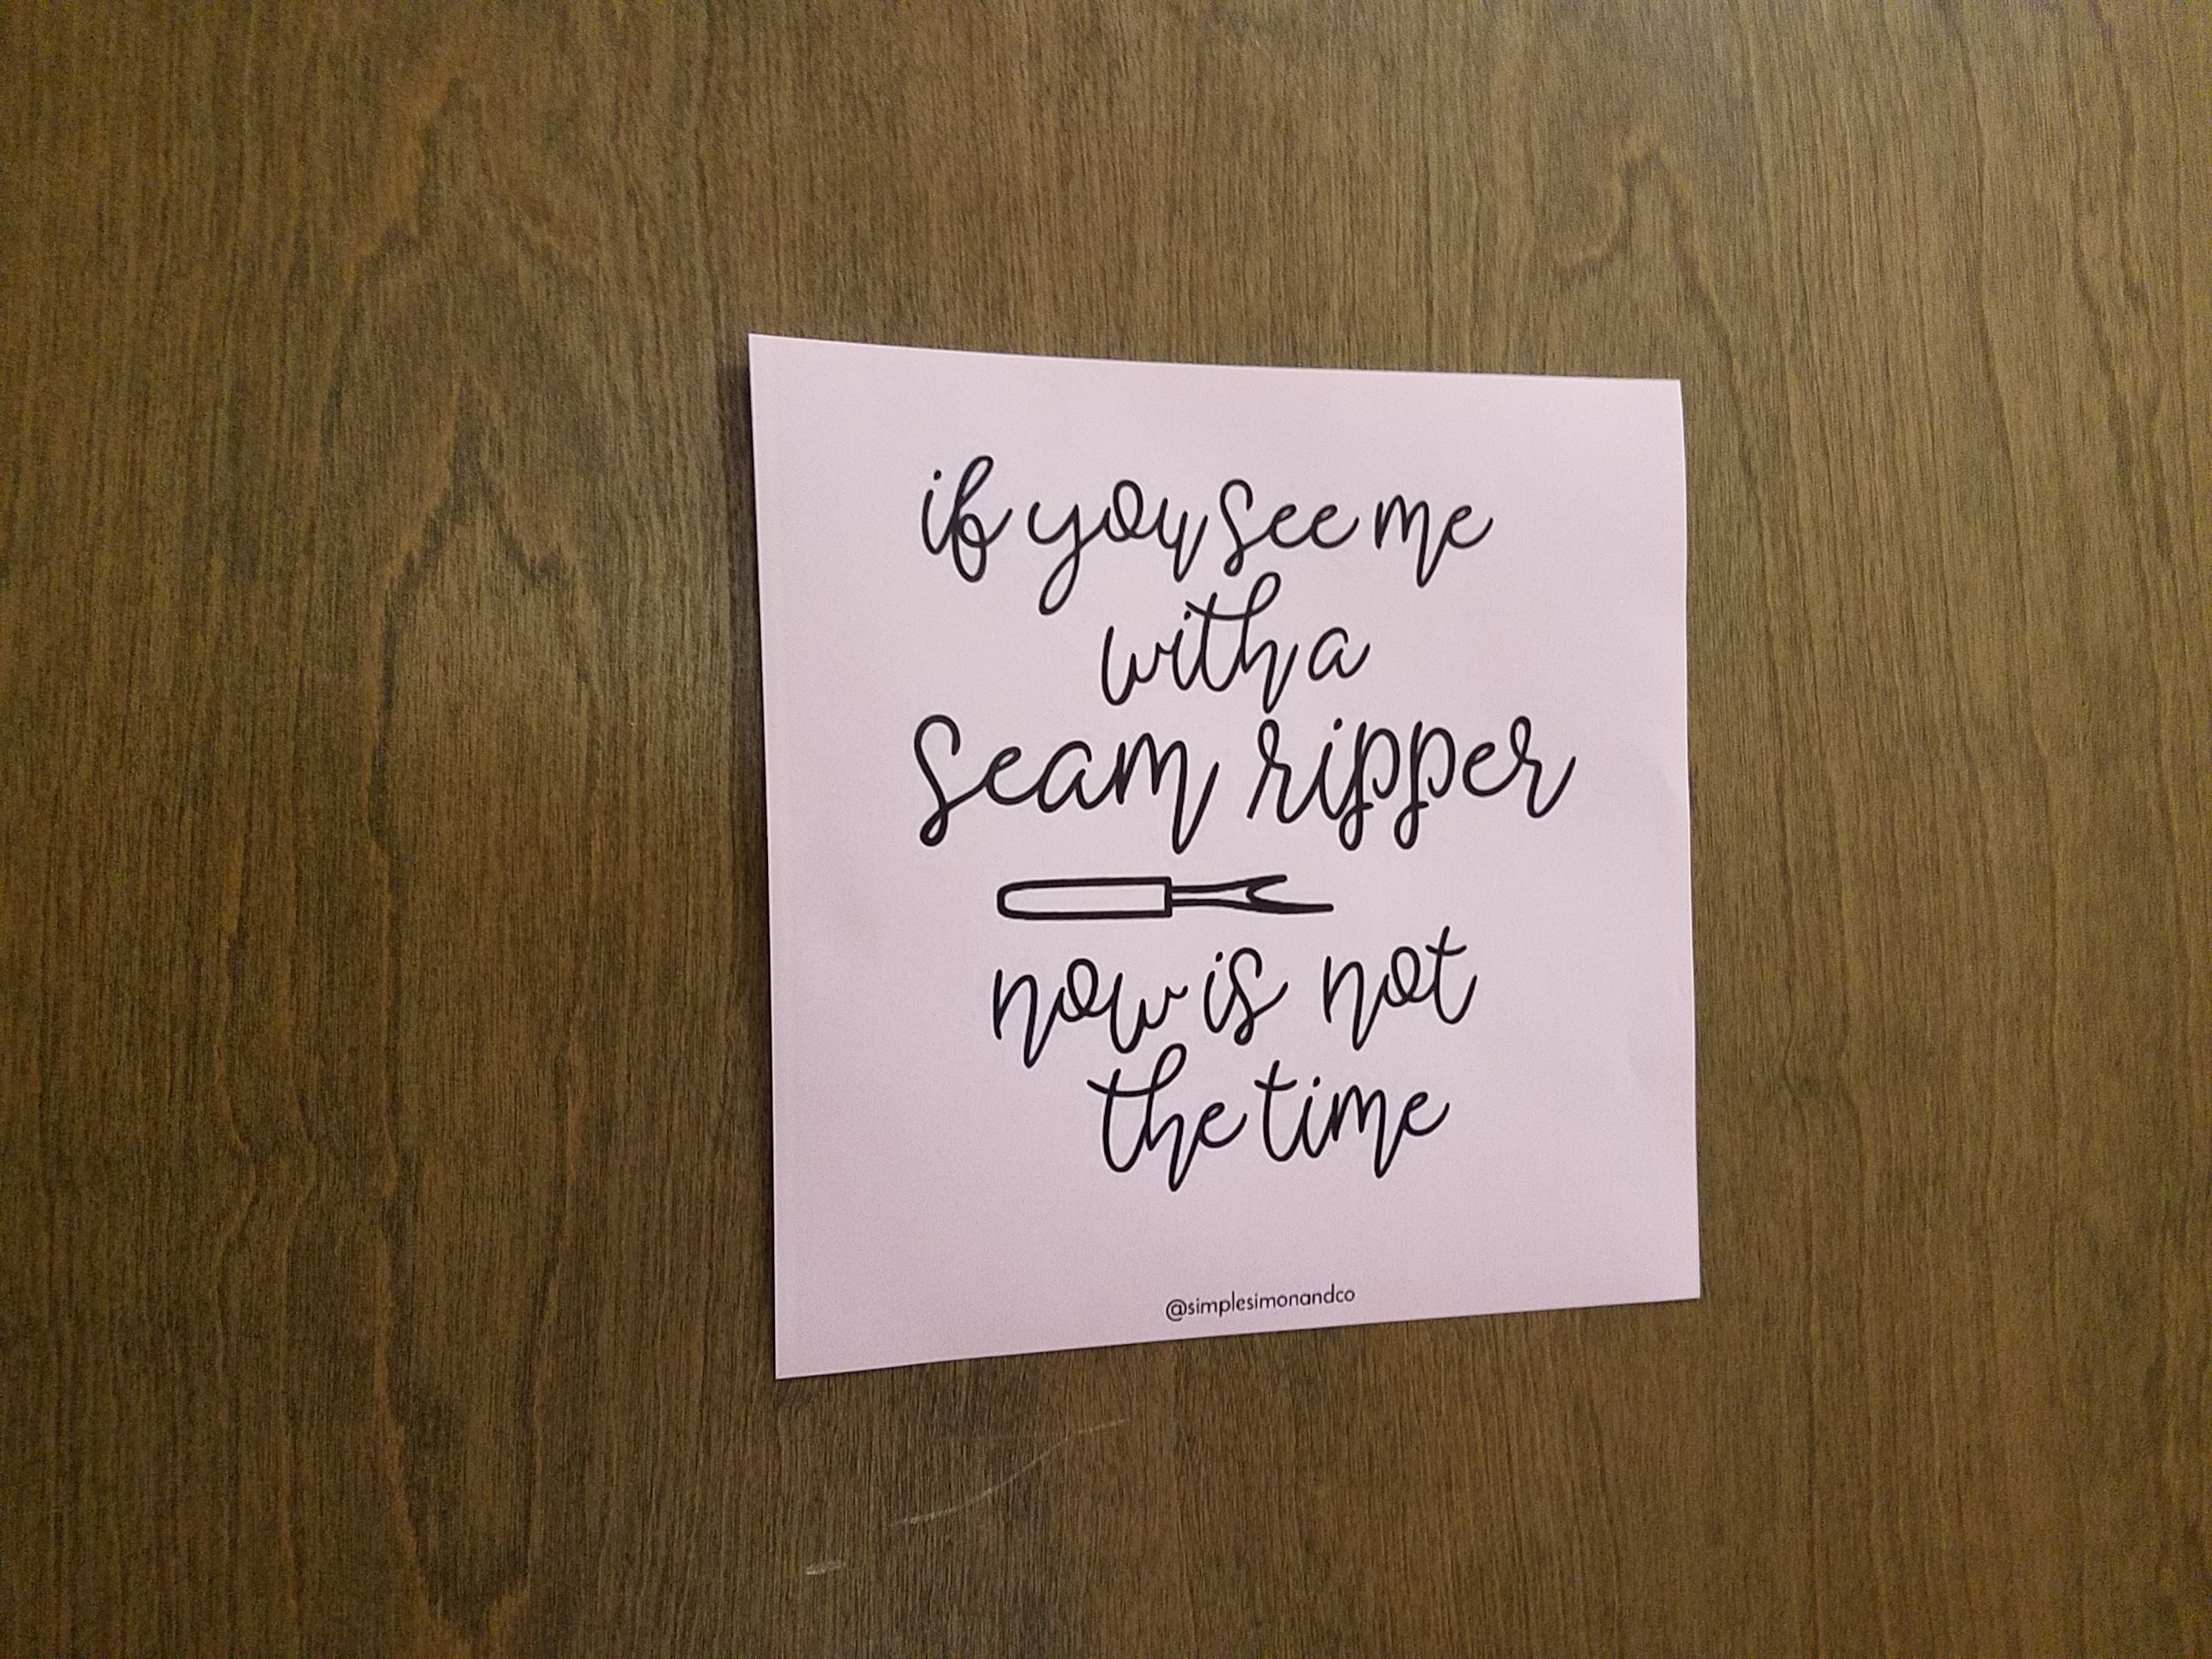 if you see me
with a
seam ripper
now is not
the time
@simplesimonandco